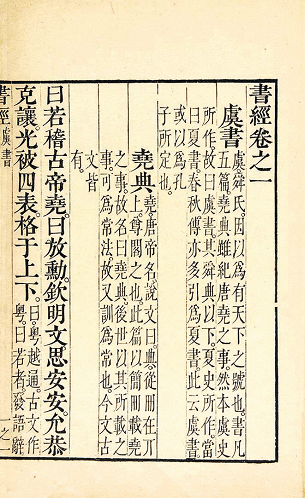 書經卷之一
虞書虞舜氏因以為有天下之號也書凡
五篇堯典雖紀唐堯之事然本虞史
所作故曰虞書其舜典以下夏史所作當
曰夏書春秋傳亦多引為夏書此云虞書
或以為孔
子所定也
堯典堯唐帝名說文曰典從冊在丌
上尊閣之也此篇以簡冊載堯
之事故名曰堯典後世以其所載之
事可為常法故又訓為常也今文古
文皆
有
曰若稽古帝堯曰放勳欽明文思安安允恭
克讓光被四表格于上下曰粵越通古文作
粵曰若者發語辭
書經 虞書 一 卷之一